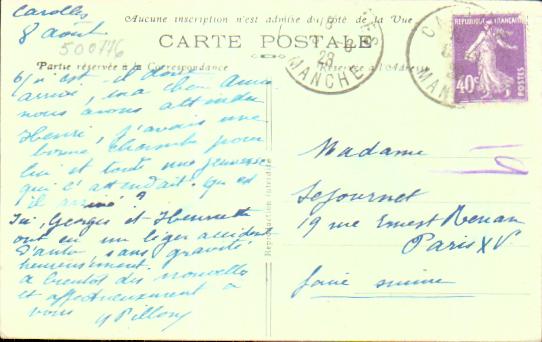 Carolles
8 Août
500776
Aucune inscription n'est admise du côté de la Vue
CARTE POSTALE
Partie réservée à la Correspondance
Partie réservée à l'Adresse
MANCHE
MANCHE
REPUBLIQUE FRANÇAISE
40c
POSTES
Qu'est il donc
arrivé, ma chère Amie
nous avons attendu
Henri, j'avais une
bonne chambre pour
lui et toute une jeunesse
qui l'attendait. Qu'est
il arrivé ?
Ici, Georges et Henriette
ont eu un léger accident
d'auto sans gravité
heureusement.
à bientôt des nouvelles
et affectueusement à
vous
Reproduction interdite
Madame
Sejournet
19 rue Ernest Renan
Paris XV
faire suivre